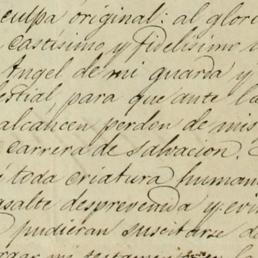 culpa original: al glori
castísimo y fidelísimo
Angel de mi guarda y
estial, para que ante la
alcancen perdon de mis
carrera de salvacion.
toda criatura human
asalte desprevenida y evi
pudieran suscitarse de
mi testamento en la